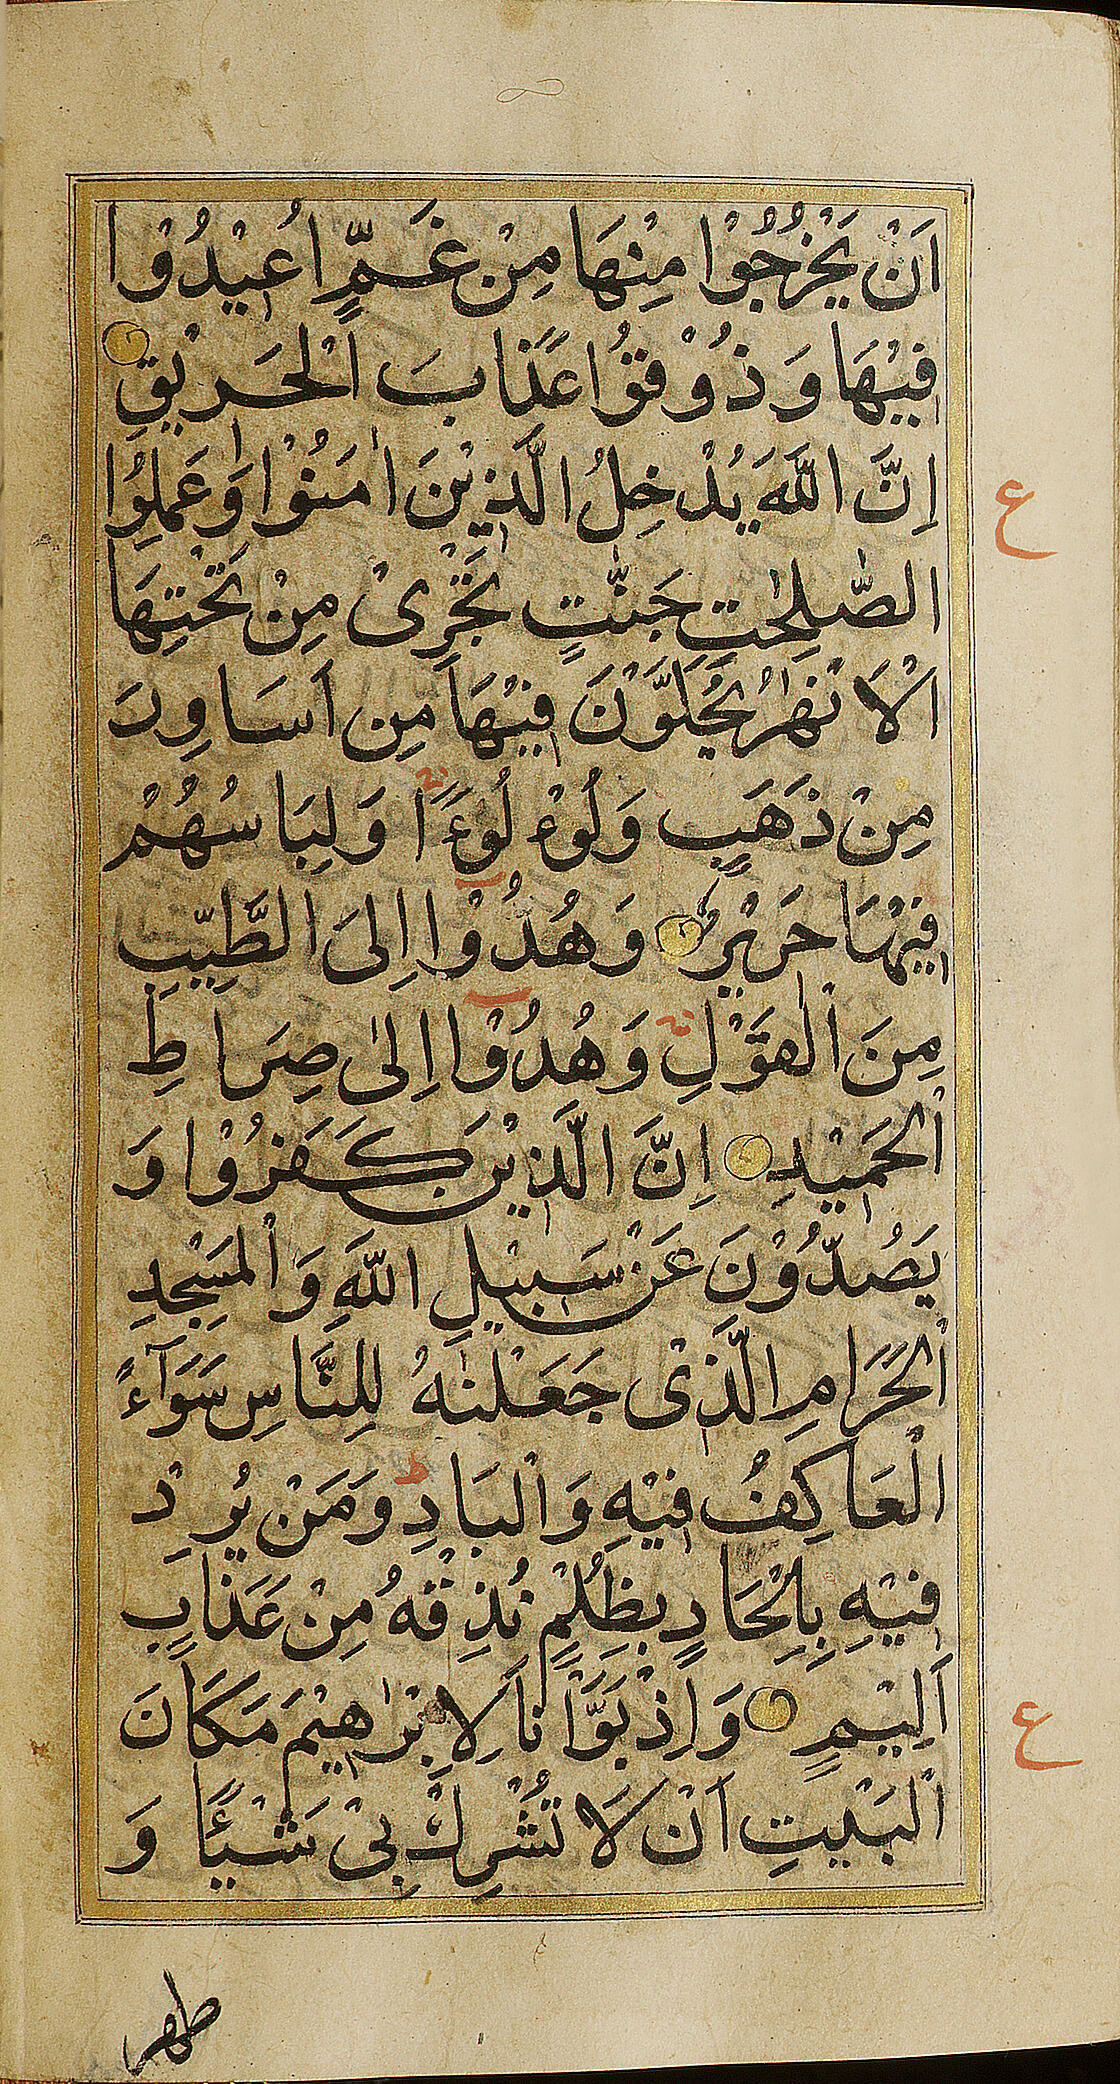 اَنْ يَخْرُجُوْا مِنْهَا مِنْ غَمٍّ اُعِيْدُوْا
فِيْهَا وَ ذُوْقُوْا عَذَابَ الْحَرِيْقِ
ع
اِنَّ اللّٰهَ يُدْخِلُ الَّذِيْنَ اٰمَنُوْا وَ عَمِلُوا
الصّٰلِحٰتِ جَنّٰتٍ تَجْرِىْ مِنْ تَحْتِهَا
الْاَنْهٰرُ يُحَلَّوْنَ فِيْهَا مِنْ اَسَاوِرَ
مِنْ ذَهَبٍ وَ لُوْءْلُوءًا وَ لِبَاسُهُمْ
فِيْهَا حَرِيْرٌ وَ هُدُوْا اِلَى الطَّيِّبِ
مِنَ الْقَوْلِ وَ هُدُوْا اِلٰى صِرَاطِ
الْحَمِيْدِ اِنَّ الَّذِيْنَ كَفَرُوْا وَ
يَصُدُّوْنَ عَنْ سَبِيْلِ اللّٰهِ وَ الْمَسْجِدِ
الْحَرَامِ الَّذِىْ جَعَلْنٰهُ لِلنَّاسِ سَوَآءً
الْعَاكِفُ فِيْهِ وَ الْبَادِ ط وَ مَنْ يُرِدْ
فِيْهِ بِاِلْحَادٍ بِظُلْمٍ نُذِقْهُ مِنْ عَذَابٍ
اَلِيْمٍ وَ اِذْ بَوَّاْنَا لِاِبْرٰهِيْمَ مَكَانَ
ع
الْبَيْتِ اَنْ لَا تُشْرِكْ بِىْ شَيْئًا وَ
طهر